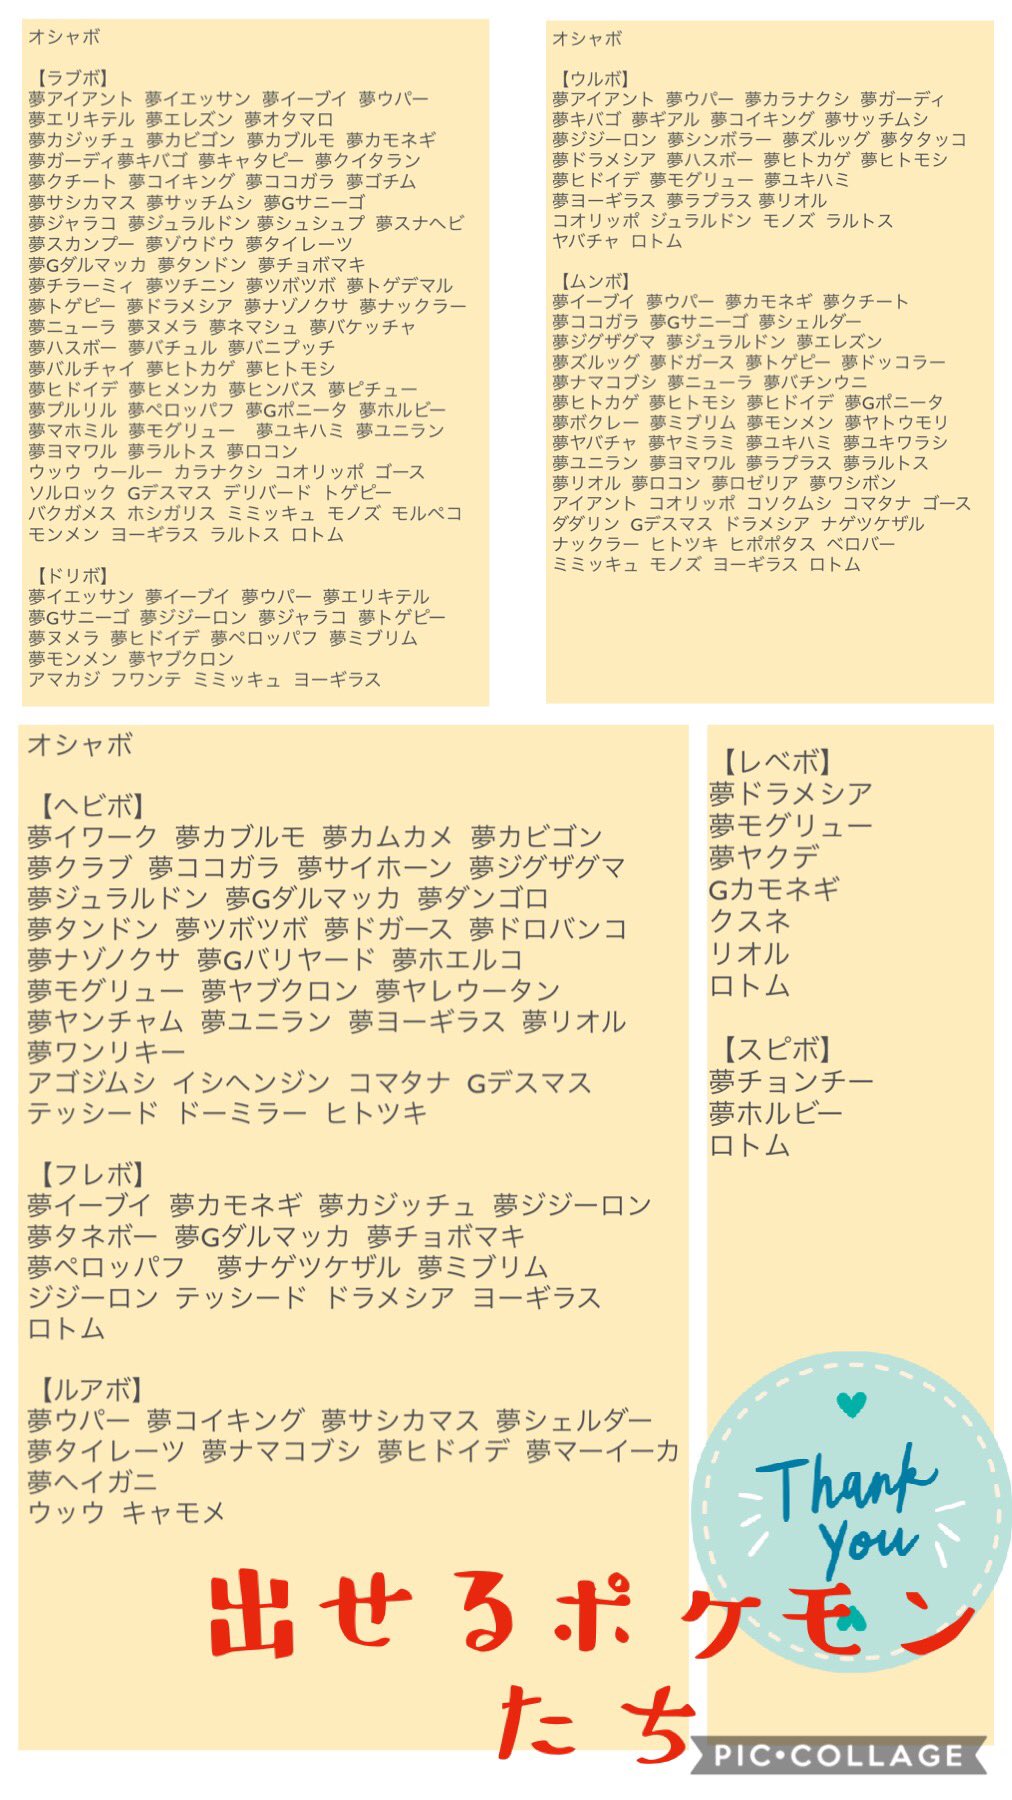 オシャボ
【ラブボ】
夢アイアント 夢イエッサン 夢イーブイ 夢ウパー
夢エリキテル 夢エレズン 夢オタマロ
夢カジッチュ 夢カビゴン 夢カブルモ 夢カモネギ
夢ガーディ夢キバゴ 夢キャタピー 夢クイタラン
夢クチート 夢コイキング 夢ココガラ 夢ゴチム
夢サシカマス 夢サッチムシ 夢Gサニーゴ
夢ジャラコ 夢ジュラルドン 夢シュシュプ 夢スナヘビ
夢スカンプー 夢ゾウドウ 夢タイレーツ
夢Gダルマッカ 夢タンドン 夢チョボマキ
夢チラーミィ 夢ツチニン 夢ツボツボ 夢トゲデマル
夢トゲピー 夢ドラメシア 夢ナゾノクサ 夢ナックラー
夢ニューラ 夢ヌメラ 夢ネマシュ 夢バケッチャ
夢ハスボー 夢バチュル 夢バニプッチ
夢バルチャイ 夢ヒトカゲ 夢ヒトモシ
夢ヒドイデ 夢ヒメンカ 夢ヒンバス 夢ピチュー
夢プルリル 夢ペロッパフ 夢Gポニータ 夢ホルビー
夢マホミル 夢モグリュー 夢ユキハミ 夢ユニラン
夢ヨマワル 夢ラルトス 夢ロコン
ウッウ ウールー カラナクシ コオリッポ ゴース
ソルロック Gデスマス デリバード トゲピー
バクガメス ホシガリス ミミッキュ モノズ モルペコ
モンメン ヨーギラス ラルトス ロトム
【ドリボ】
夢イエッサン 夢イーブイ 夢ウパー 夢エリキテル
夢Gサニーゴ 夢ジジーロン 夢ジャラコ 夢トゲピー
夢ヌメラ 夢ヒドイデ 夢ペロッパフ 夢ミブリム
夢モンメン 夢ヤブクロン
アマカジ フワンテ ミミッキュ ヨーギラス
オシャボ
【ウルボ】
夢アイアント 夢ウパー 夢カラナクシ 夢ガーディ
夢キバゴ 夢ギアル 夢コイキング 夢サッチムシ
夢ジジーロン 夢シンボラー 夢ズルッグ 夢タタッコ
夢ドラメシア 夢ハスボー 夢ヒトカゲ 夢ヒトモシ
夢ヒドイデ 夢モグリュー 夢ユキハミ
夢ヨーギラス 夢ラプラス 夢リオル
コオリッポ ジュラルドン モノズ ラルトス
ヤバチャ ロトム
【ムンボ】
夢イーブイ 夢ウパー 夢カモネギ 夢クチート
夢ココガラ 夢Gサニーゴ 夢シェルダー
夢ジグザグマ 夢ジュラルドン 夢エレズン
夢ズルッグ 夢ドガース 夢トゲピー 夢ドッコラー
夢ナマコブシ 夢ニューラ 夢バチンウニ
夢ヒトカゲ 夢ヒトモシ 夢ヒドイデ 夢Gポニータ
夢ボクレー 夢ミブリム 夢モンメン 夢ヤトウモリ
夢ヤバチャ 夢ヤミラミ 夢ユキハミ 夢ユキワラシ
夢ユニラン 夢ヨマワル 夢ラプラス 夢ラルトス
夢リオル 夢ロコン 夢ロゼリア 夢ワシボン
アイアント コオリッポ コソクムシ コマタナ ゴース
ダダリン Gデスマス ドラメシア ナゲツケザル
ナックラー ヒトツキ ヒポポタス ベロバー
ミミッキュ モノズ ヨーギラス ロトム
オシャボ
【ヘビボ】
夢イワーク 夢カブルモ 夢カムカメ 夢カビゴン
夢クラブ 夢ココガラ 夢サイホーン 夢ジグザグマ
夢ジュラルドン 夢Gダルマッカ 夢ダンゴロ
夢タンドン 夢ツボツボ 夢ドガース 夢ドロバンコ
夢ナゾノクサ 夢Gバリヤード 夢ホエルコ
夢モグリュー 夢ヤブクロン 夢ヤレウータン
夢ヤンチャム 夢ユニラン 夢ヨーギラス 夢リオル
夢ワンリキー
アゴジムシ イシヘンジン コマタナ Gデスマス
テッシード ドーミラー ヒトツキ
【フレボ】
夢イーブイ 夢カモネギ 夢カジッチュ 夢ジジーロン
夢タネボー 夢Gダルマッカ 夢チョボマキ
夢ペロッパフ 夢ナゲツケザル 夢ミブリム
ジジーロン テッシード ドラメシア ヨーギラス
ロトム
【ルアボ】
夢ウパー 夢コイキング 夢サシカマス 夢シェルダー
夢タイレーツ 夢ナマコブシ 夢ヒドイデ 夢マーイーカ
夢ヘイガニ
ウッウ キャモメ
【レベボ】
夢ドラメシア
夢モグリュー
夢ヤクデ
Gカモネギ
クスネ
リオル
ロトム
【スピボ】
夢チョンチー
夢ホルビー
ロトム
Thank
you
出せるポケモン
たち
PIC•COLLAGE